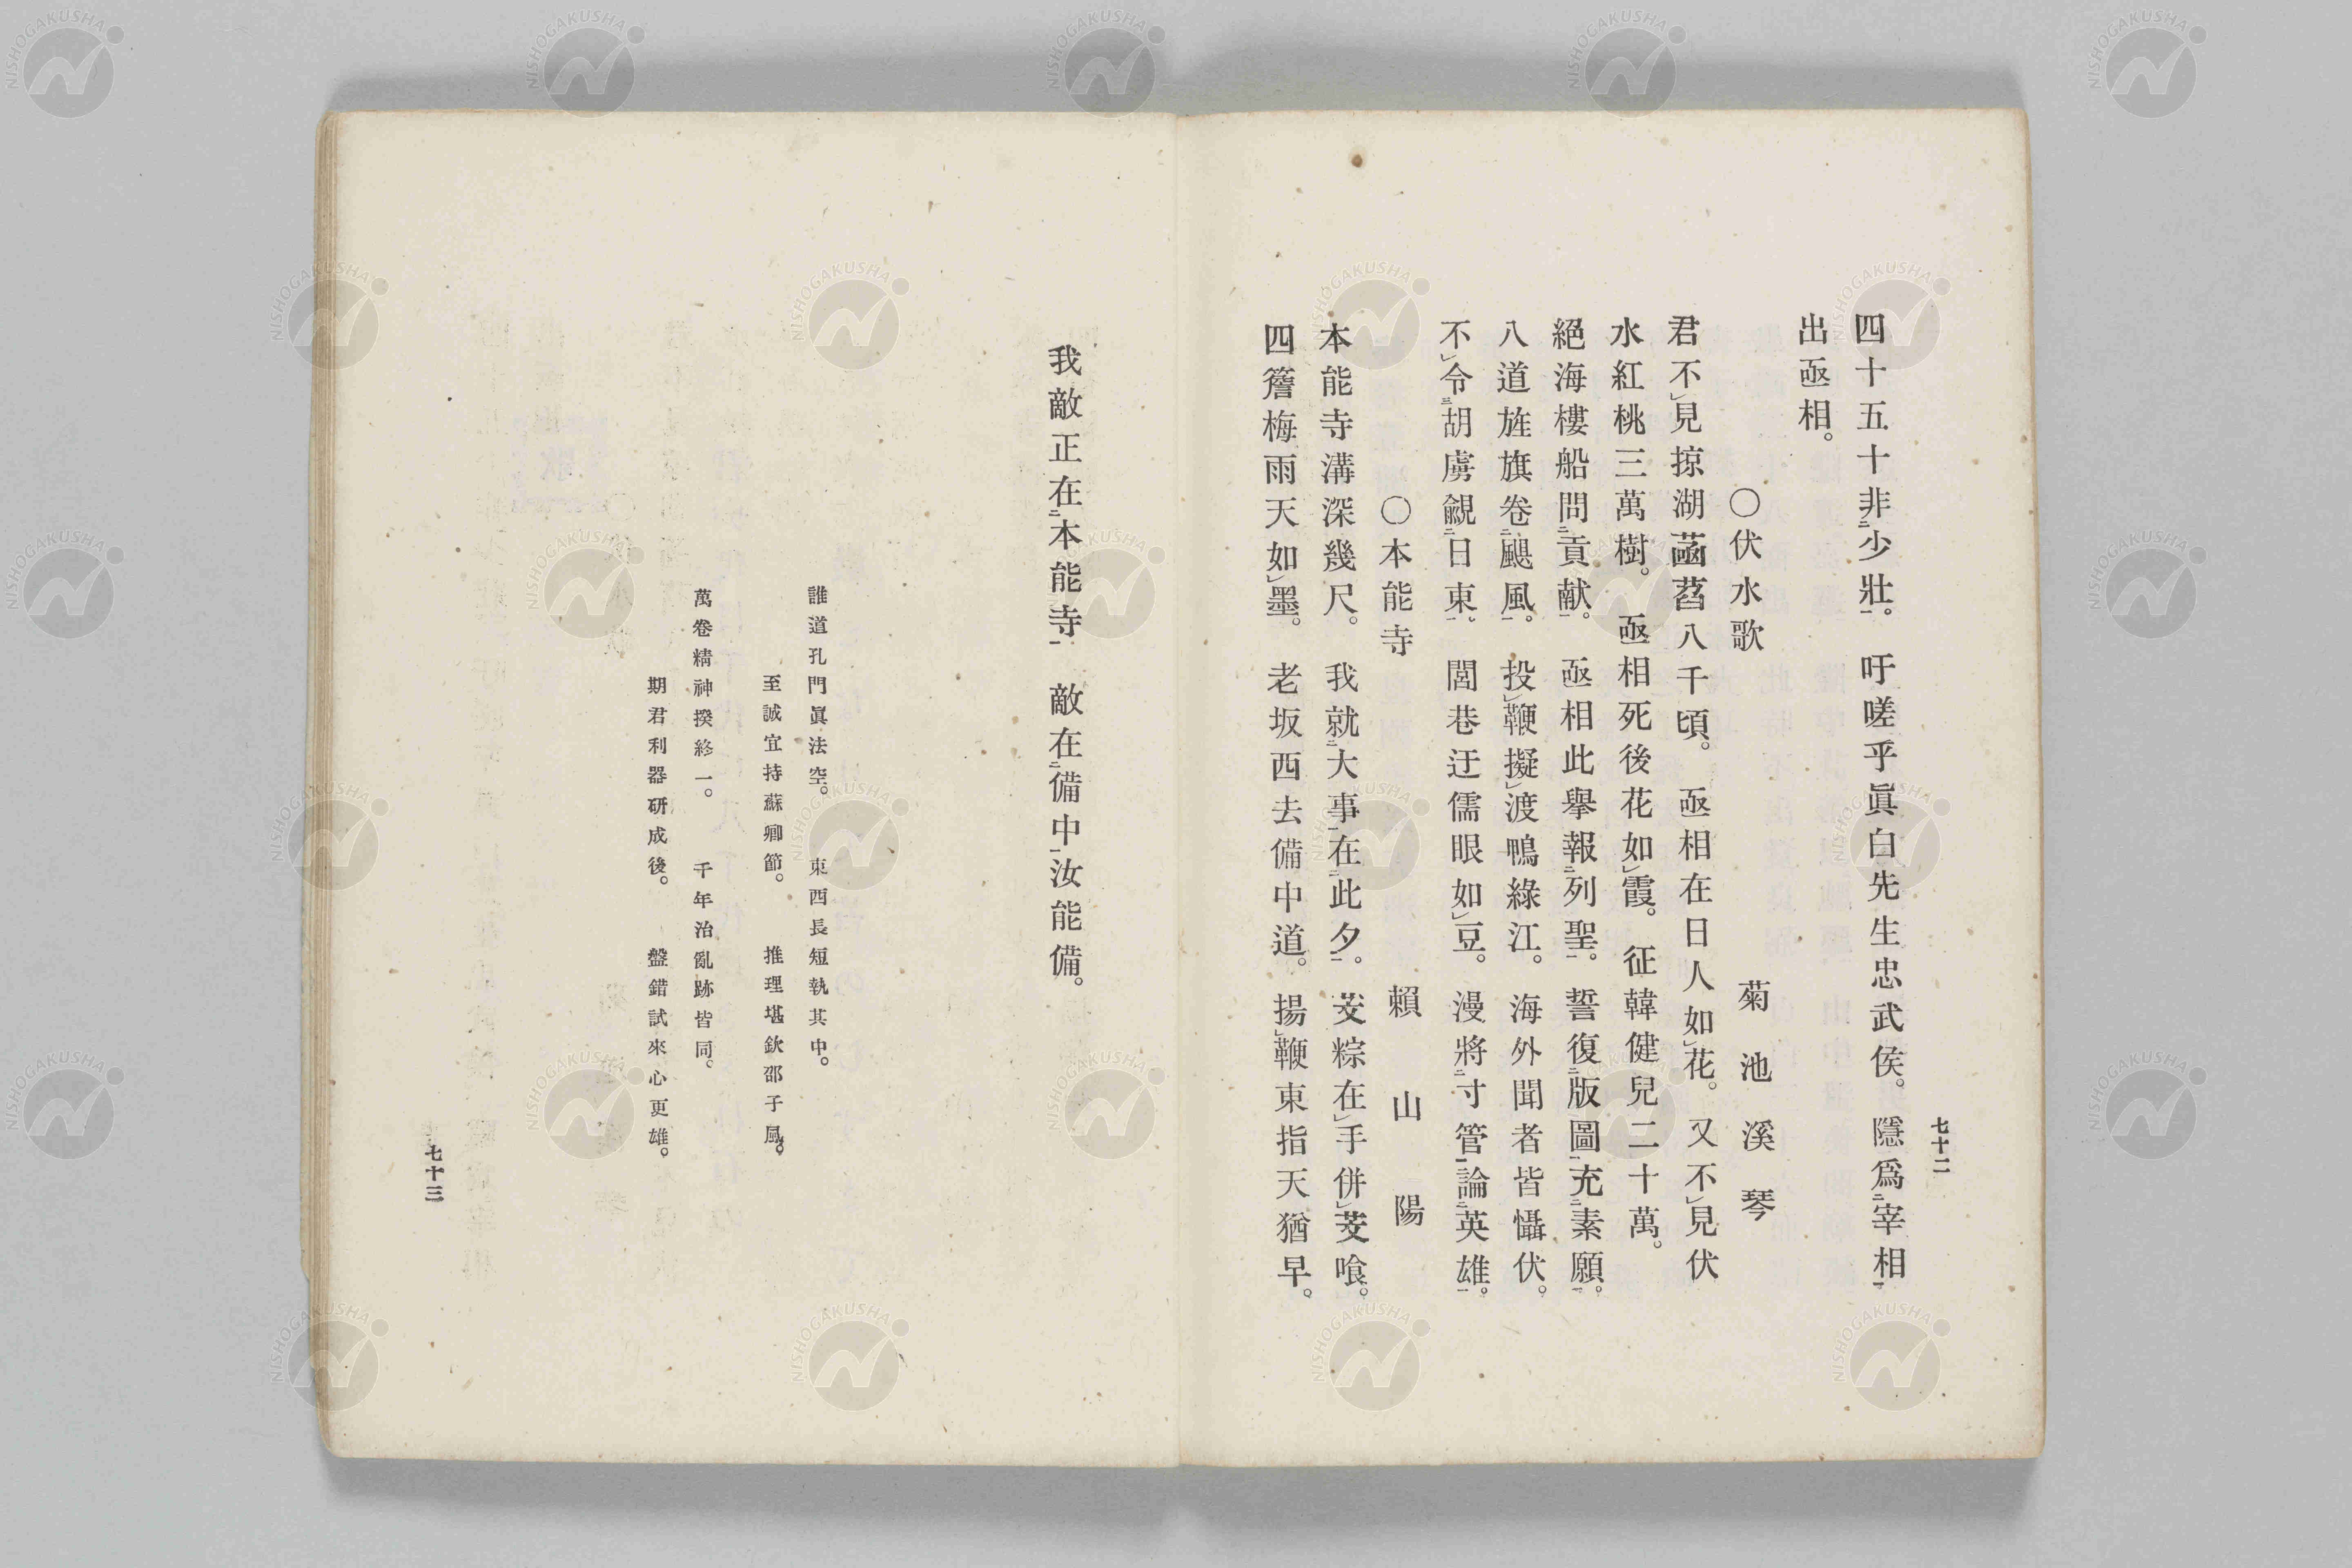 七十二
四十五十非二少壯一。吁嗟乎眞白先生忠武侯。隱爲二宰相一
出亟相。
〇伏水歌　菊池溪琴
君不レ見掠湖菡萏八千頃。亟相在日人如レ花。又不レ見伏
水紅桃三萬樹。亟相死後花如レ霞。征韓健兒二十萬。
絕海樓船問二貢献一。亟相此擧報二列聖一。誓復二版圖一充二素願一。
八道旌旗卷二颶風一。投レ鞭擬レ渡鴨綠江。海外聞者皆懾伏。
不レ令三胡虜覦二日東一。閭巷迂儒眼如レ豆。漫將二寸管一論二英雄一。
〇本能寺　賴山陽
本能寺溝深幾尺。我就二大事一在二此夕一。茭粽在レ手併レ茭喰。
四簷梅雨天如レ墨。老坂西去備中道。揚レ鞭東指天猶早。
我敵正在二本能寺一　敵在二備中一汝能備。
誰道孔門眞法空。東西長短執其中。
至誠宜持蘇卿節。推理堪欽邵子風。
萬卷精神揆終一。千年治亂跡皆同。
期君利器研成後。盤錯試來心更雄。
七十三
NISHOGAKUSHA